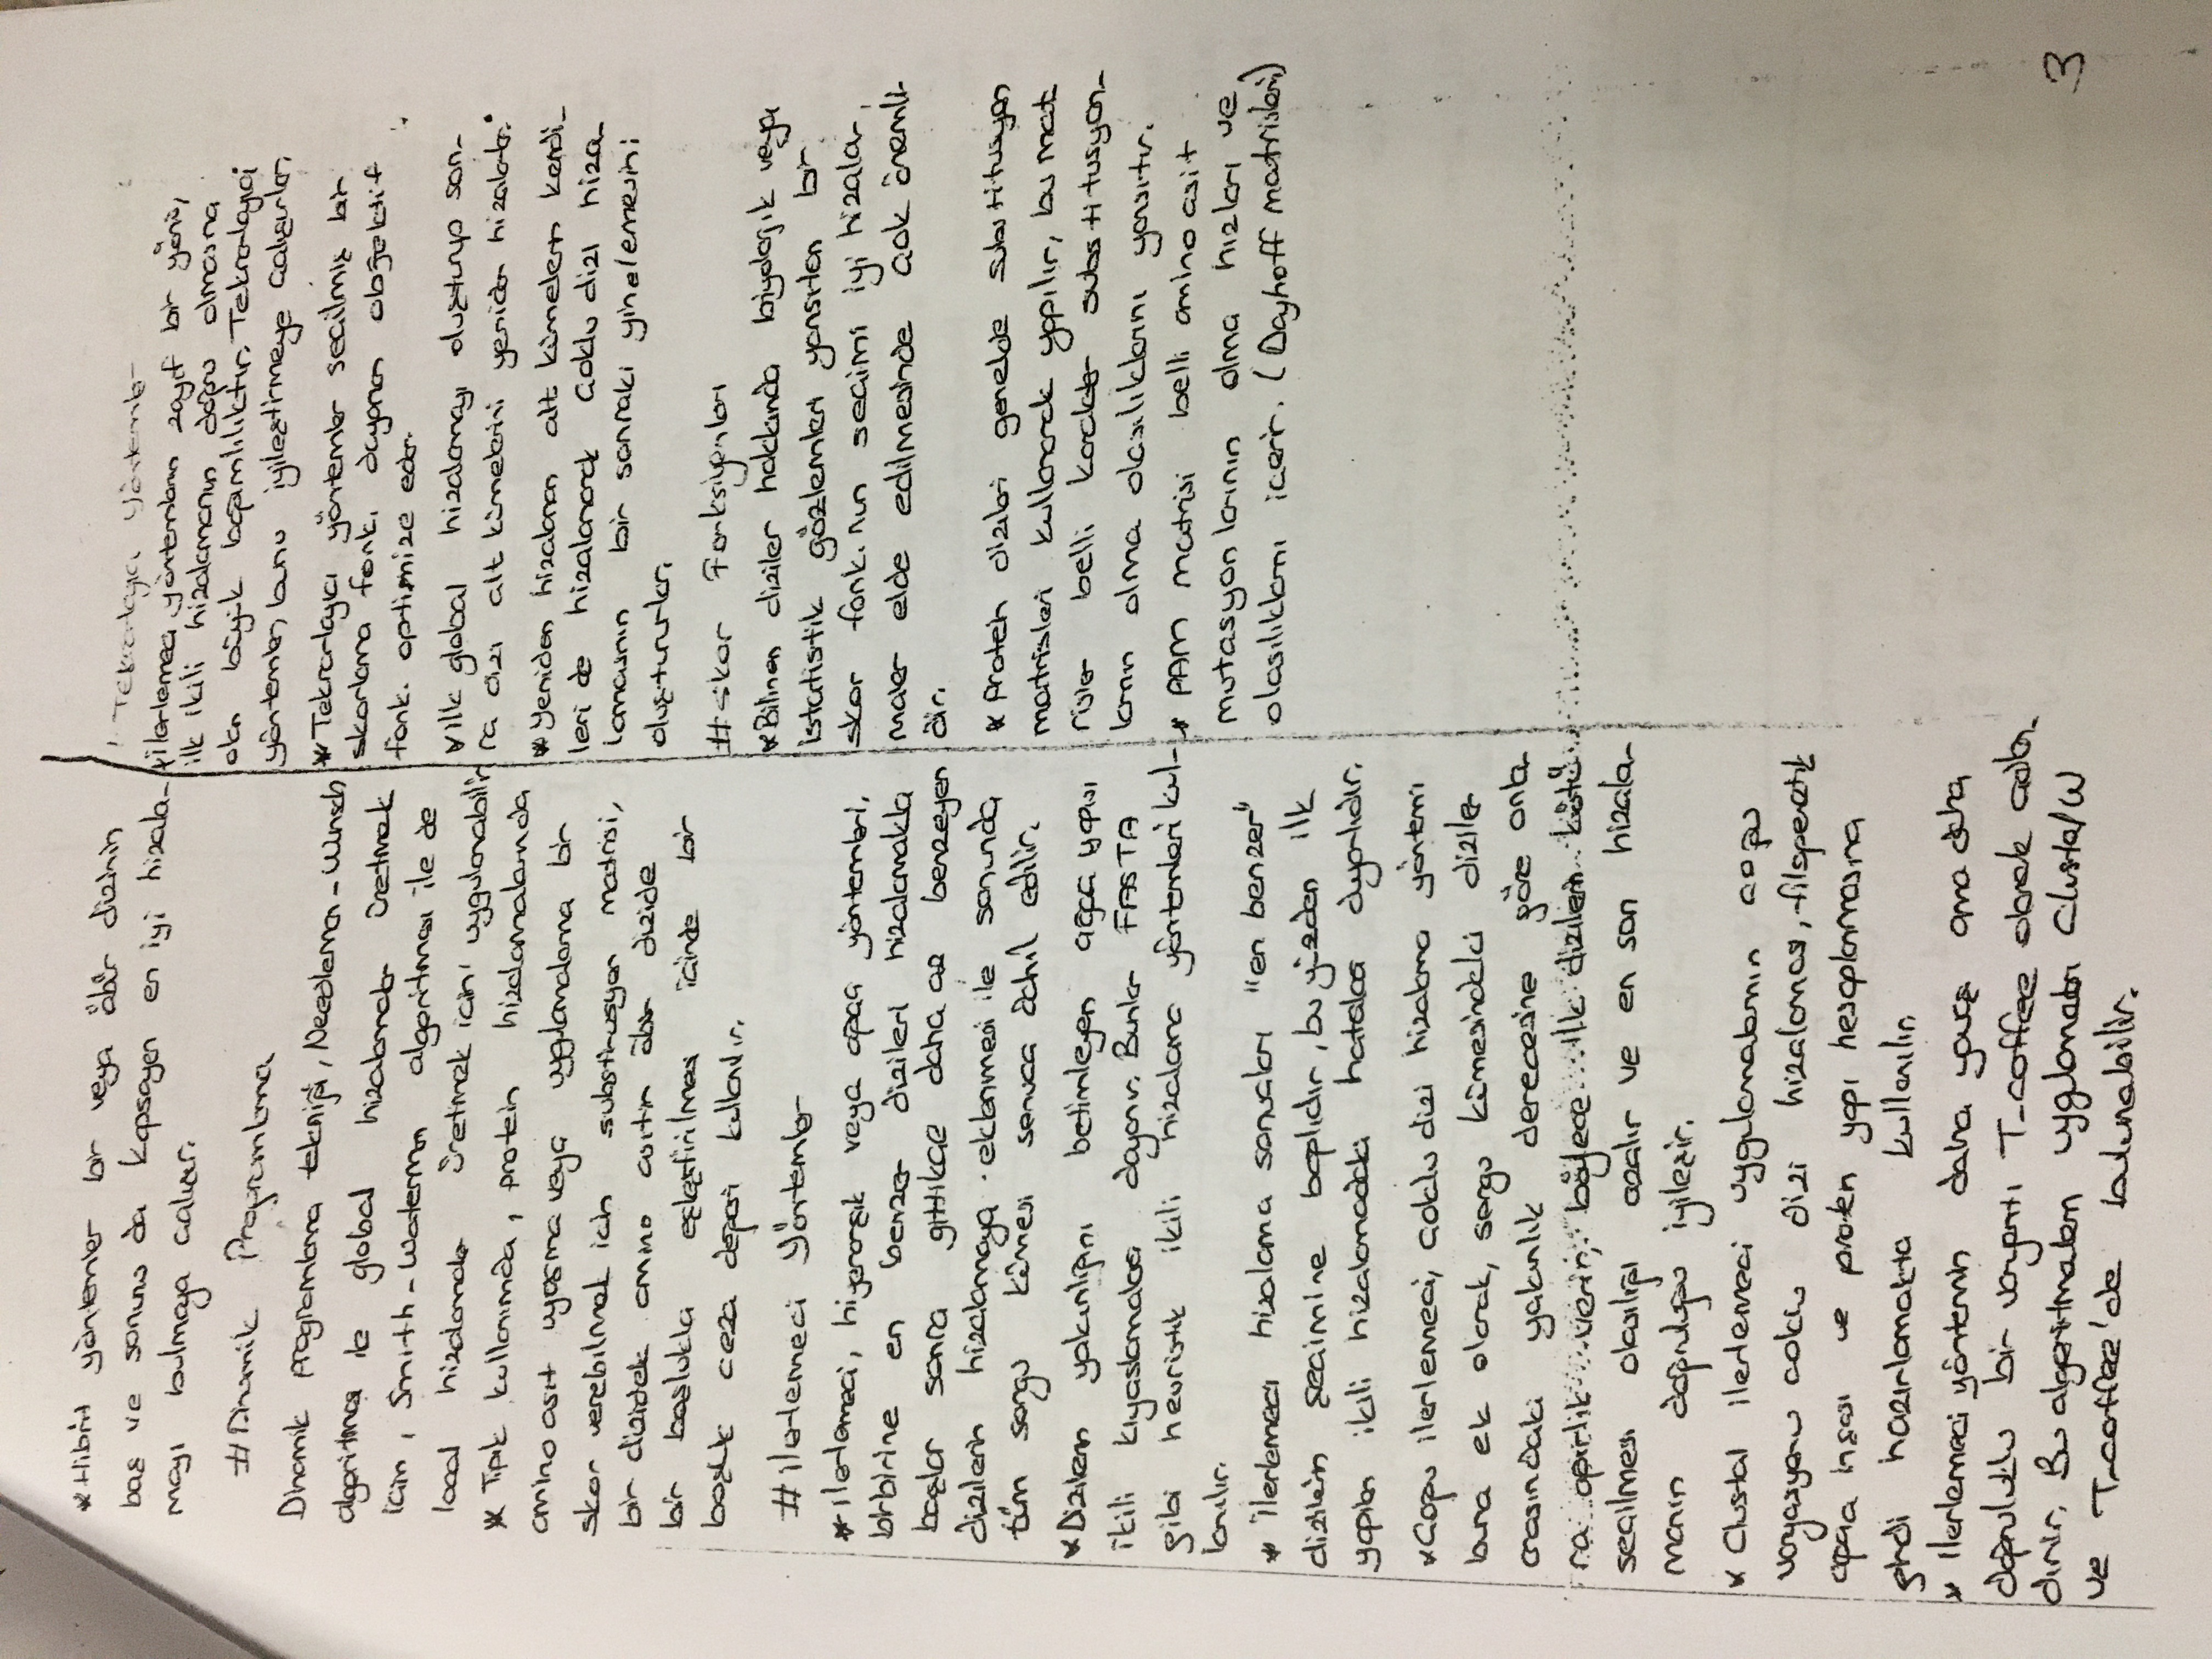 * Hibrit yöntemler bir veya öbür dizinin
baş ve sonunu da kapsayan en iyi hizala-
mayı bulmaya çalışır.
# Dinamik Programlama
Dinamik programlama tekniği, Needleman-Wunsch
algoritması ile global hizalamalar üretmek
için, Smith-Waterman algoritması ile de
local hizalamalar üretmek için uygulanabilir
* Tipik kullanımda, protein hizalamalarında
amino asit uyuşma veya uygulamalama bir
skor verebilmek için substitusyon matrisi,
bir dizideki amino asitin öbür dizide
bir boşlukla eşleştirilmesi içinde bir
boşluk ceza değeri kullanılır.
# İlerlemeci Yöntemler
* İlerlemeci, hiyerarşik veya ağaç yöntemleri,
birbirine en benzer dizileri hizalamakla
başlar sonra gittikçe daha az benzeyen
dizilerin hizalamaya eklenmesi ile sonunda
tüm sorgu kümesi sonuca dahil edilir.
* Dizilerin yakınlığını betimleyen ağaç yapısı
ikili kıyaslamalara dayanır. Bunlar FASTA
gibi heuristik ikili hizalama yöntemleri kul-
lanılır.
* İlerlemeci hizalama sonuçları "en benzer"
dizilerin seçimine bağlıdır, bu yüzden ilk
yapılan ikili hizalamadaki hatalara duyarlıdır.
* Çoğu ilerlemeci, çoklu dizi hizalama yöntemi
buna ek olarak, sorgu kümesindeki diziler
arasındaki yakınlık derecesine göre onla-
ra ağırlık verir, böylece ilk dizilerin kötü
seçilmesi olasılığı azalır ve en son hizala-
manın doğruluğu iyileşir.
* Clustal ilerlemeci uygulamalarının çoğu
varyasyonu çoklu dizi hizalaması, filogenetik
ağaç inşası ve protein yapı hesaplamasına
girdi hazırlamakta kullanılır.
* İlerlemeci yöntemin daha yavaş ama daha
doğruluklu bir varyantı T-coffee olarak adlan-
dırılır. Bu algoritmaların uygulamaları ClustalW
ve T-coffee'de bulunabilir.
Tekrarlayıcı Yöntemler
* ilerlemeci yöntemlerin zayıf bir yönü,
ilk ikili hizalamanın doğru olmasına
olan büyük bağımlılıktır. Tekrarlayıcı
yöntemler, bunu iyileştirmeye çalışırlar.
* Tekrarlayıcı yöntemler seçilmiş bir
skorlama fonk. dayanan objektif
fonk. optimize eder.
* ilk global hizalamayı oluşturup son-
ra dizi alt kümelerini yeniden hizalatır.
* Yeniden hizalanan alt kümelerin kendi-
leri de hizalanarak çoklu dizi hiza-
lamasının bir sonraki yinelemesini
oluştururlar.
# Skor Fonksiyonları
* Bilinen diziler hakkında biyolojik veya
istatistik gözlemleri yansıtan bir
skor fonk.nun seçimi iyi hizala-
malar elde edilmesinde çok önemli-
dir.
* Protein dizileri genelde substitusyon
matrisleri kullanarak yapılır, bu mat
risler belli karakter substitusyon-
larının olma olasılıklarını yansıtır.
* PAM matrisi belli amino asit
mutasyonlarının olma hızları ve
olasılıklarını içerir. (Dayhoff matrisleri)
3